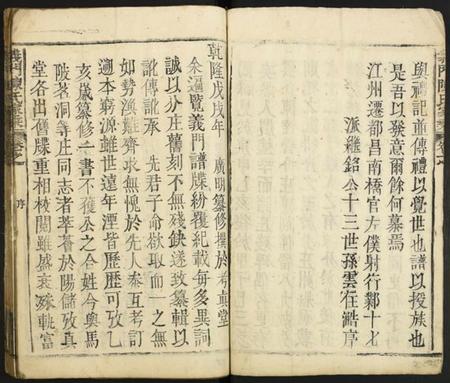 輿禮記並傳禮以覺世也譜以授族也
是吾以發意爾餘何慕焉
江州遷都昌南橋官左僕射行鄴十七
派繼銘公十三世孫雲在錯序
乾隆戊戌年 廣明纂修撰於考真堂
余遍覽義門譜牒紛復紀載每多異詞
誠以分庄舊刻不無殘缺遂致纂輯以
訛傳訛承 先君子命欲取而一之無
如勢渙難齊求無愧於先人泰互考訂
遡本窮源雖世遠年湮皆歷歷可攷乙
亥歲纂修一書不獲公之合姓今與馬
陂茗洞等庄同志者萃薈於陽儲攷真
堂各出舊牒重相校閱雖盛衰殊軌富
義門陳氏
序